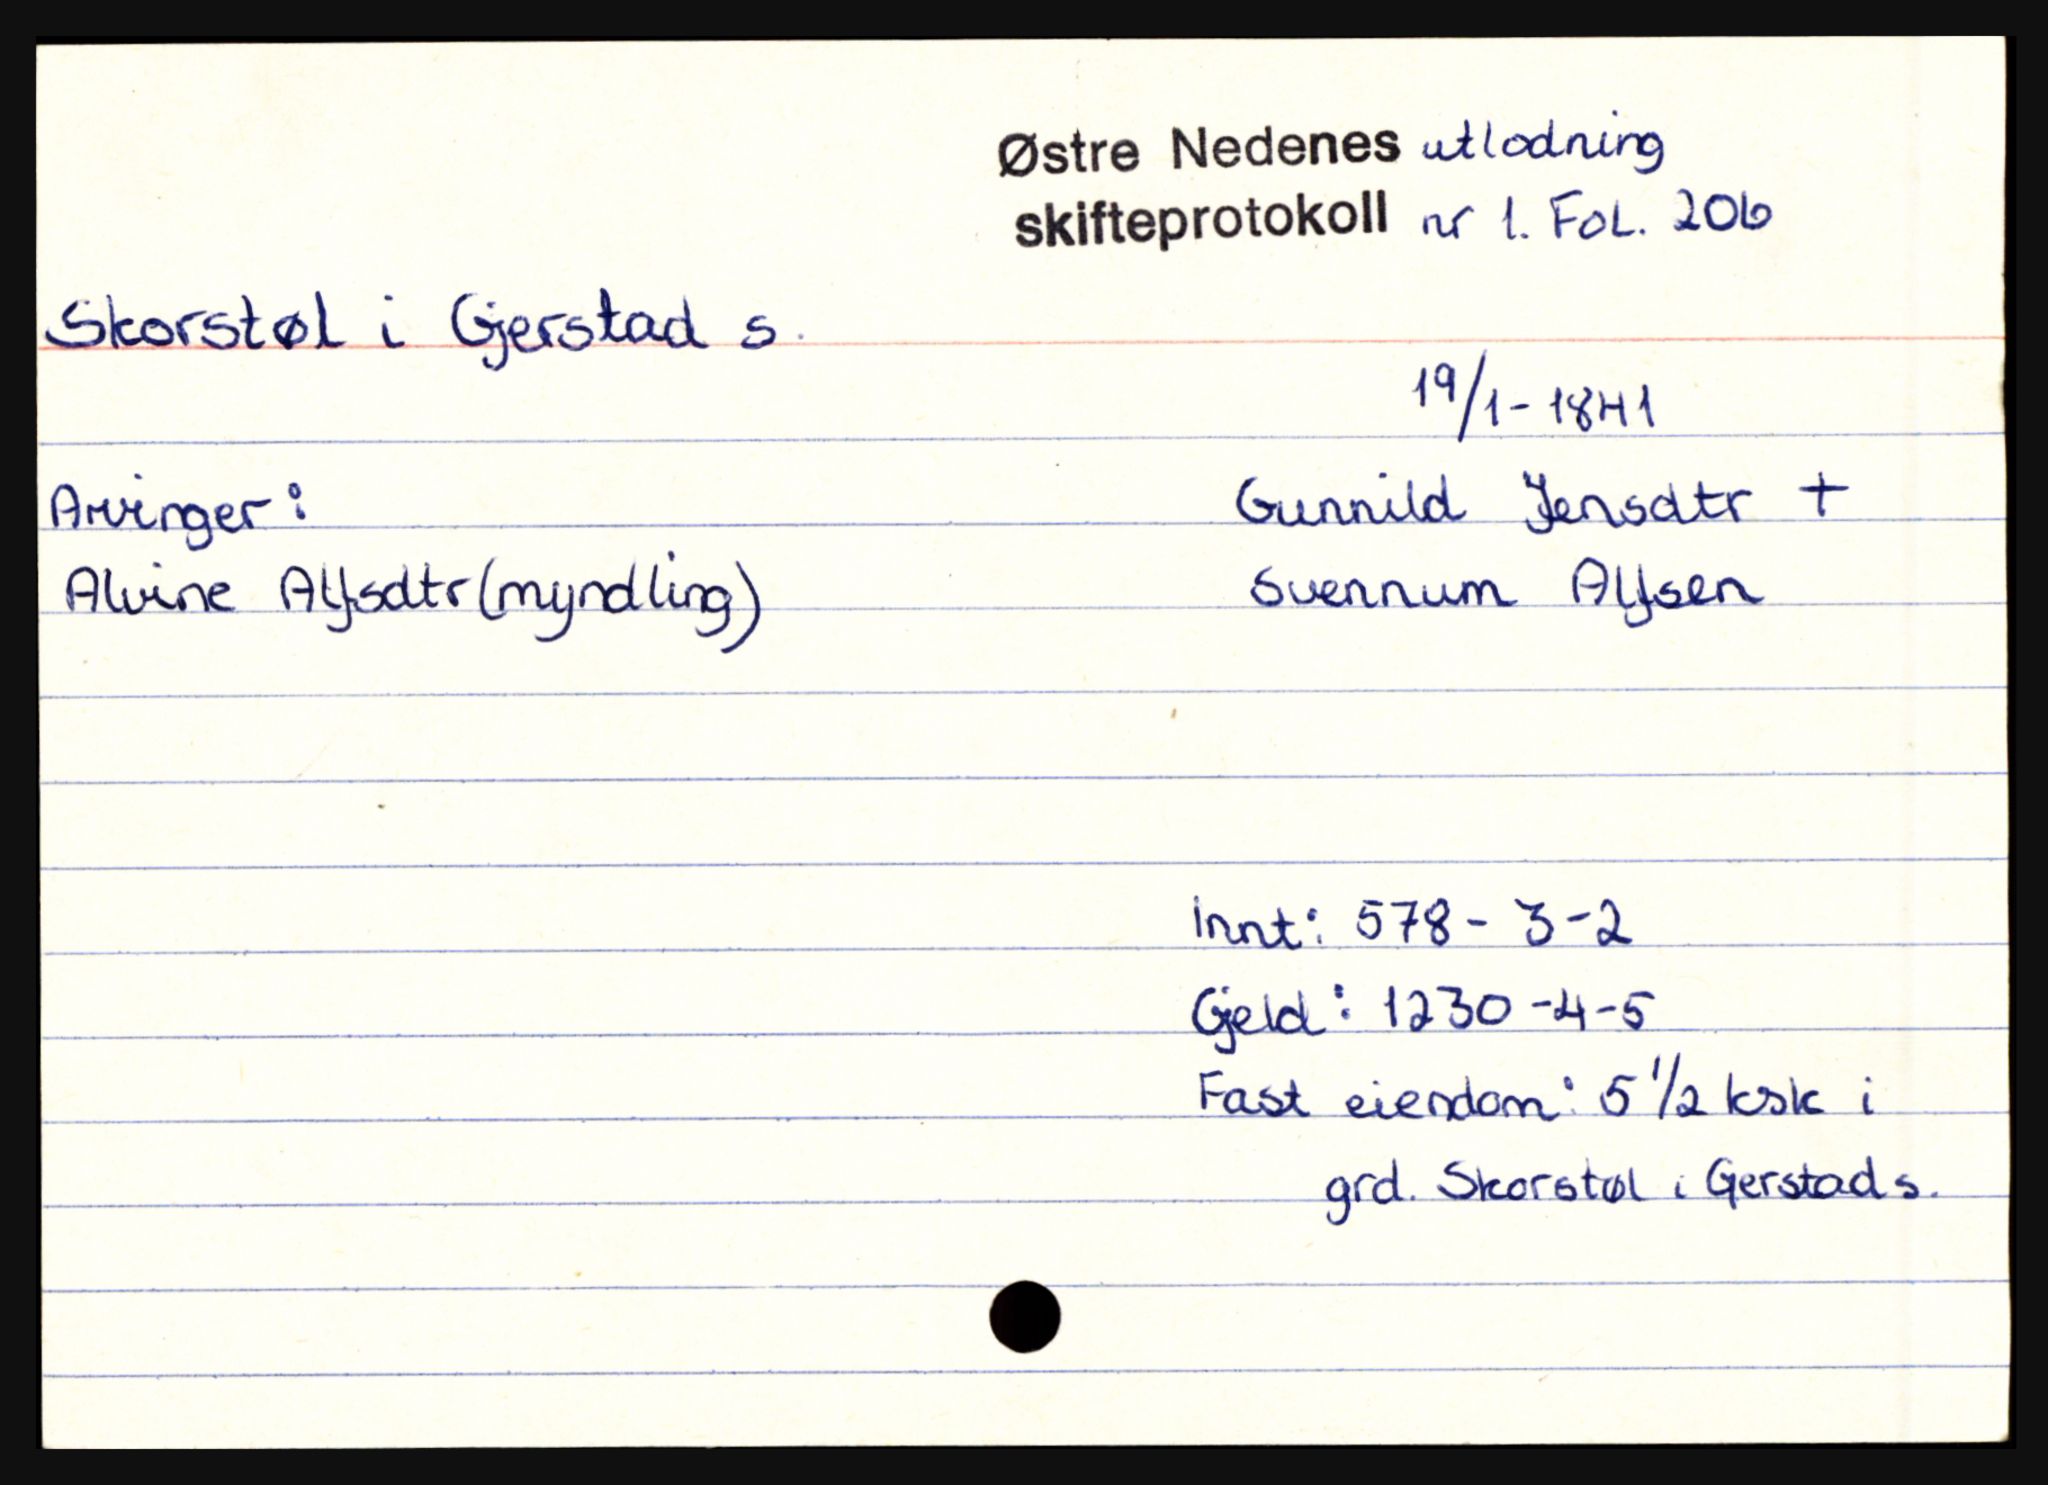 Østre Nedenes utlodning
skifteprotokoll nr 1. FOL. 206
Skorstøl i Gjerstad s.
19/1-1841
Arvinger: Gunnild Jensdtr +
Alvine Alfsdtr (myndling) Svennum Alfsen
Innt: 578-3-2
Gjeld: 1230-4-5
Fast eiendom: 5 1/2 ksk i
grd. Skorstøl i Gjerstad s.